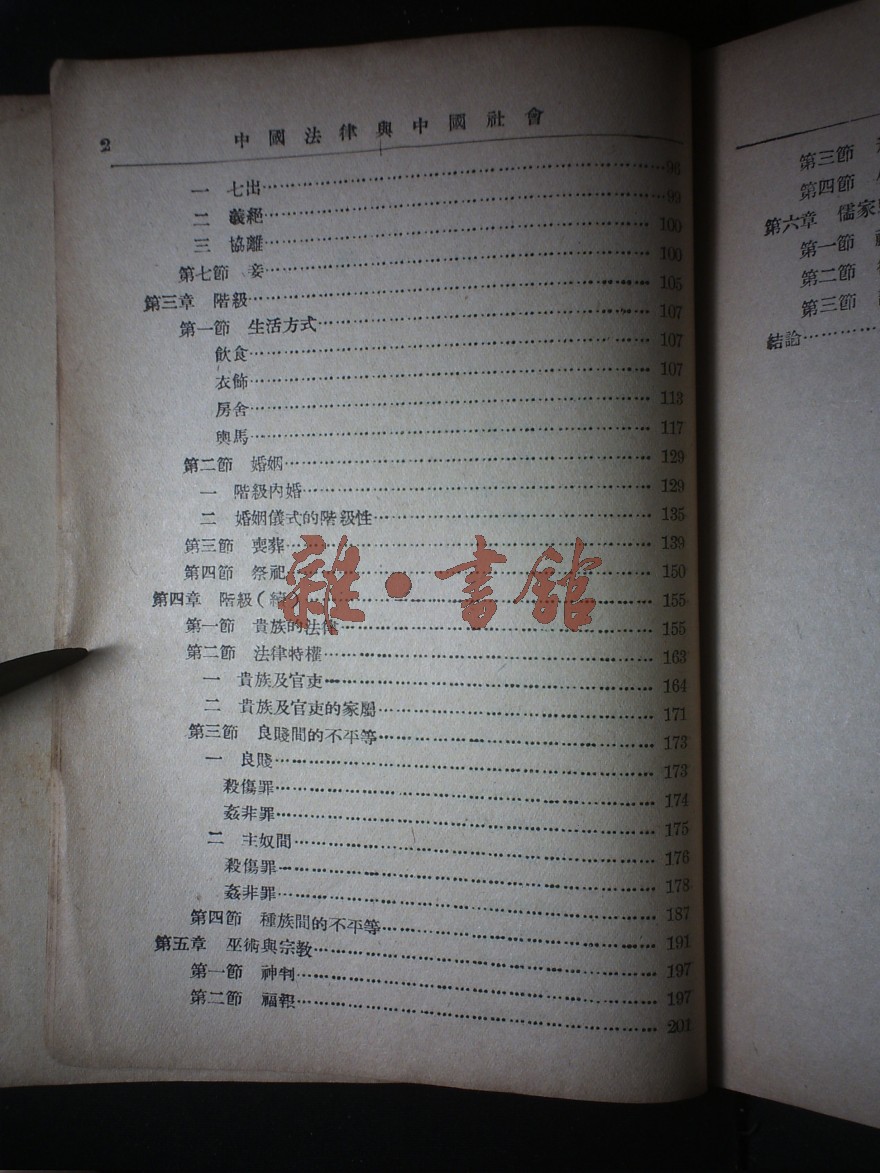 2 中國法律與中國社會
一 七出……96
二 義絕……99
三 協離……100
第七節 妾……100
第三章 階級……105
第一節 生活方式……107
飲食……107
衣飾……107
房舍……113
輿馬……117
第二節 婚姻……129
一 階級內婚……129
二 婚姻儀式的階級性……135
第三節 喪葬……139
第四節 祭祀……150
第四章 階級(續)……155
第一節 貴族的法律……155
第二節 法律特權……163
一 貴族及官吏……164
二 貴族及官吏的家屬……171
第三節 良賤間的不平等……173
一 良賤……173
殺傷罪……174
姦非罪……175
二 主奴間……176
殺傷罪……178
姦非罪……187
第四節 種族間的不平等……191
第五章 巫術與宗教……197
第一節 神判……197
第二節 福報……201
雜·書館
第三節
第四節
第六章 儒家
第一節
第二節
第三節
結論……